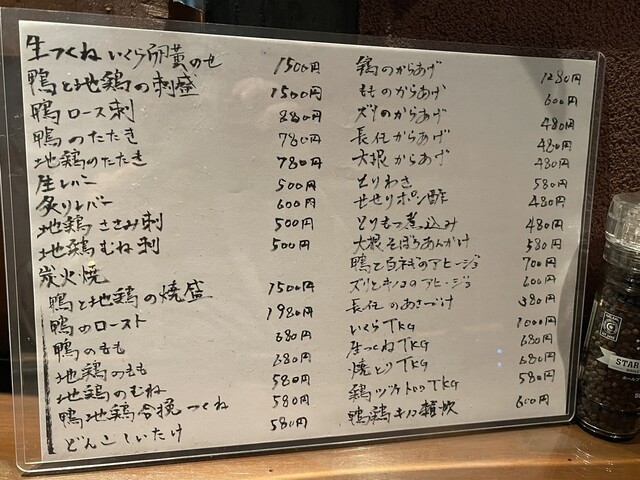 生つくね いくら卵黄のせ 1500円
鴨と地鶏の刺盛 1500円
鴨ロース刺 880円
鴨のたたき 780円
地鶏のたたき 780円
生レバー 500円
炙りレバー 600円
地鶏ささみ刺 500円
地鶏むね刺 500円
炭火焼
鴨と地鶏の焼盛 1500円
鴨のロースト 1980円
鴨のもも 680円
地鶏のもも 680円
地鶏のむね 580円
鴨地鶏合挽つくね 580円
どんこしいたけ 580円
鶏のからあげ 1280円
もものからあげ 600円
ズリのからあげ 480円
長芋からあげ 480円
大根からあげ 480円
とりわさ 580円
せせりポン酢 480円
とりもつ煮込み 480円
大根そぼろあんかけ 580円
鴨と白ネギのアヒージョ 700円
ズリとキノコのアヒージョ 600円
長芋のあさづけ 380円
いくらTKG 1000円
生つくねTKG 680円
焼とりTKG 680円
鶏ヅケトロッTKG 580円
鴨鶏キノコ雑炊 600円
STAR